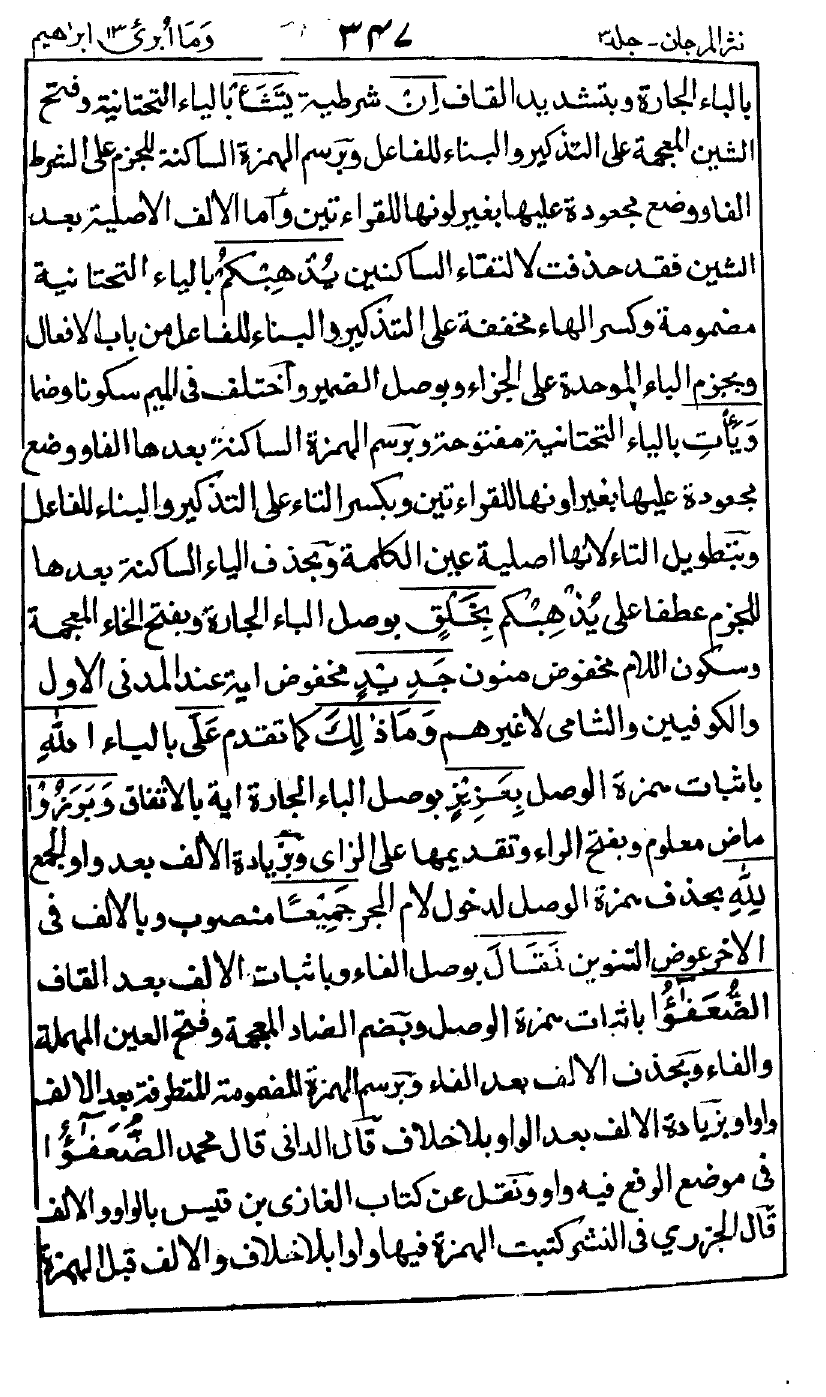 نثر المرجان - جلد٣ ٣٤٧ وَمَا أُبَرِّئُ ١٣ ابراهيم
بالباء الجارة وبتشديد القاف إِنْ شرطية يَشَأْ بالياء التحتانية وفتح
الشين المعجمة على التذكير والبناء للفاعل وبرسم الهمزة الساكنة للجزم على الشرط
الفا ووضع مجعودة عليها بغير لونها للقراءتين وأما الألف الاصلية بعد
الشين فقد حذفت لالتقاء الساكنين يُذْهِبْكُمْ بالياء التحتانية
مضمومة وكسر الهاء مخففة على التذكير والبناء للفاعل من باب الافعال
وبجزم الباء الموحدة على الجزاء وبوصل الضمير واختلف في الميم سكونا وضما
وَيَأْتِ بالياء التحتانية مفتوحة وبرسم الهمزة الساكنة بعدها الفا ووضع
مجعودة عليها بغير لونها للقراءتين وبكسر التاء على التذكير والبناء للفاعل
وبتطويل التاء لانها اصلية عين الكلمة وبحذف الياء الساكنة بعدها
للجزم عطفا على يُذْهِبْكُم بِخَلْقٍ بوصل الباء الجارة وبفتح الخاء المعجمة
وسكون اللام مخفوض منون جَدِيْدٍ مخفوض اية عند المدني الاول
والكوفيين والشامي لاغيرهم وَمَا ذٰلِكَ كما تقدم عَلَى بالياء اللّٰهِ
باثبات همزة الوصل بِعَزِيْزٍ بوصل الباء الجارة اية بالاتفاق وَبَرَزُوْا
ماض معلوم وبفتح الراء وتقديمها على الزاى وبزيادة الألف بعد واو الجمع
لِلّٰهِ بحذف همزة الوصل لدخول لام الجر جَمِيْعًا منصوب وبالالف في
الاخر عوض التنوين فَقَالَ بوصل الفاء وباثبات الالف بعد القاف
الضُّعَفٰٓؤُا باثبات همزة الوصل وبضم الضاد المعجمة وفتح العين المهملة
والفاء وبحذف الالف بعد الفاء وبرسم الهمزة المضمومة المتطرفة بعد الالف
واوا وبزيادة الالف بعد الواو بلاخلاف قال الداني قال محمد الضُّعَفٰٓؤُا
في موضع الرفع فيه واو ونقل عن كتاب الغازى بن قيس بالواو والالف
قال الجزري في النشر كتبت الهمزة فيها واوا بلاخلاف والالف قبل الهمزة